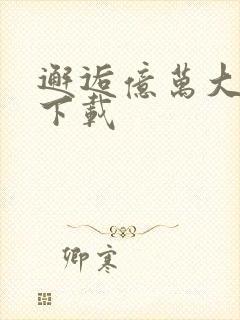 邂逅億萬大
下載
卿寒